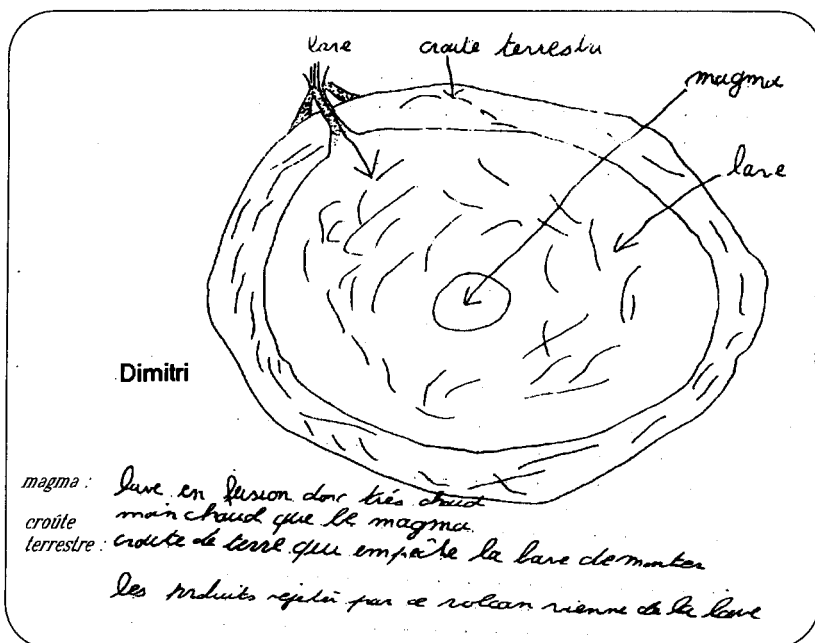 lave
croute terrestre
magma
lave
Dimitri
magma : lave en fusion donc très chaud
croûte moin chaud que le magma.
terrestre : croute de terre qui empêche la lave de monter
les produits rejetés par ce volcan vienne de la lave